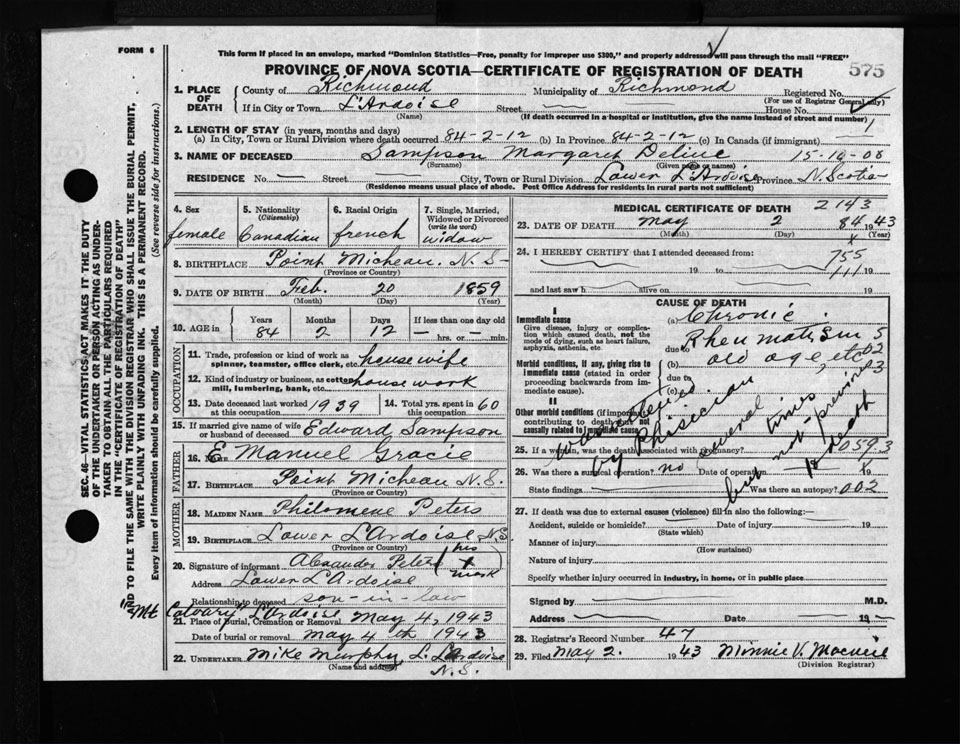 FORM 6
This form if placed in an envelope, marked "Dominion Statistics—Free, penalty for improper use $300," and properly addressed will pass through the mail "FREE"
PROVINCE OF NOVA SCOTIA—CERTIFICATE OF REGISTRATION OF DEATH
575
1. PLACE OF DEATH
County of Richmond Municipality of Richmond Registered No.
(For use of Registrar General only)
If in City or Town L'Ardoise Street House No.
(Name) (If death occurred in a hospital or institution, give the name instead of street and number)
1
2. LENGTH OF STAY (in years, months and days)
(a) In City, Town or Rural Division where death occurred 84-2-12 (b) In Province 84-2-12 (c) In Canada (if immigrant)
3. NAME OF DECEASED Sampson Margaret 15-10-08
(Surname) (Given name or names)
RESIDENCE No. — Street City, Town or Rural Division Lower L'Ardoise Province N. Scotia
(Residence means usual place of abode. Post Office Address for residents in rural parts not sufficient)
4. Sex
female
5. Nationality
(Citizenship)
Canadian
6. Racial Origin
french
7. Single, Married, Widowed or Divorced
(write the word)
widow
8. BIRTHPLACE Point Micheau. N.S-
(Province or Country)
9. DATE OF BIRTH Feb. 20 1859
(Month) (Day) (Year)
10. AGE in
Years Months Days If less than one day old
84 2 12 — hrs. or — min.
OCCUPATION
11. Trade, profession or kind of work as spinner, teamster, office clerk, etc. housewife
12. Kind of industry or business, as cotton mill, lumbering, bank, etc. house work
13. Date deceased last worked at this occupation 1939
14. Total yrs. spent in this occupation 60
15. If married give name of wife or husband of deceased Edward Sampson
FATHER
16. Name E Manuel Gracie
17. BIRTHPLACE Point Micheau N.S.
(Province or Country)
MOTHER
18. MAIDEN NAME Philomene Peters
19. BIRTHPLACE Lower L'Ardoise N.S
(Province or Country)
20. Signature of informant Alexander Peters (his + mark
Address Lower L'Ardoise
Relationship to deceased son-in-law
"Mt Calvary" L'Ardoise
21. Place of Burial, Cremation or Removal May 4, 1943
Date of burial or removal May 4 th 1943
22. UNDERTAKER Mike Murphy L. L'Ardoise
(Name and address) N.S.
MEDICAL CERTIFICATE OF DEATH 2143
23. DATE OF DEATH May 2 84 1943
(Month) (Day) (Year)
x
24. I HEREBY CERTIFY that I attended deceased from:
755
19 to 19
and last saw h alive on 19
CAUSE OF DEATH
I
Immediate cause
Give disease, injury or complication which caused death, not the mode of dying, such as heart failure, asphyxia, asthenia, etc.
(a) Chronic
due to Rheumatism
Morbid conditions, if any, giving rise to immediate cause (stated in order proceeding backwards from immediate cause).
(b) old age, etc
due to
(c)
II
Other morbid conditions (if important) contributing to death but not causally related to immediate cause
was attended by Phisecian
several times
but not previous to death
25. If a woman, was the death associated with pregnancy? 059.3
26. Was there a surgical operation? no Date of operation 19
State findings Was there an autopsy? 002
27. If death was due to external causes (violence) fill in also the following:—
Accident, suicide or homicide? Date of injury 19
(State which)
Manner of injury
(How sustained)
Nature of injury
Specify whether injury occurred in industry, in home, or in public place
Signed by M.D.
Address Date 19
28. Registrar's Record Number 47
29. Filed May 2. 1943 Minnie V. Macneil
(Division Registrar)
SEC. 46—VITAL STATISTICS ACT MAKES IT THE DUTY
OF THE UNDERTAKER OR PERSON ACTING AS UNDERTAKER TO OBTAIN ALL THE PARTICULARS REQUIRED
IN THE "CERTIFICATE OF REGISTRATION OF DEATH"
AND TO FILE THE SAME WITH THE DIVISION REGISTRAR WHO SHALL ISSUE THE BURIAL PERMIT,
WRITE PLAINLY WITH UNFADING INK. THIS IS A PERMANENT RECORD.
Every item of information should be carefully supplied. (See reverse side for instructions.)